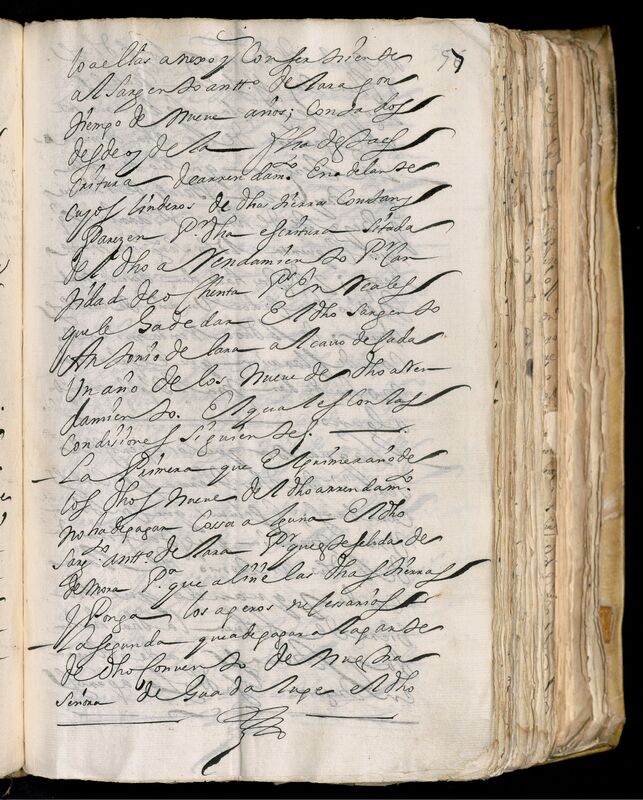 57
to a ellas anexo y Conserniende
al Sargento antt.o de lara con
tiempo de Nueve años; Contados
desde oy de la fha de esta es
critura de arrendam.to En adelante
cuyos linderos de dhas tierras Constan y
Parezen P.r dha escritura Sitada
del dho aRendamiento P.r Can
tidad de ochenta P.s En Reales
que le ha de dar El dho Sargento
Antonio de lara al cavo de Cada
Un año de los Nueve de dho aRen
damiento. El qual es Con las
Condisiones siguientes.
La Primera que El primer año de
los dhos Nueve del dho arrendam.to
no ha de pagar Cossa alguna El dho
Sarg.to antt.o de lara P.r que se le da de
demora P.a que aliñe las dhas tierras
y Ponga los aperos nessessarios
La segunda que a de pagar a la parte
de dho Convento de Nuestra
Señora de Guadalupe El dho